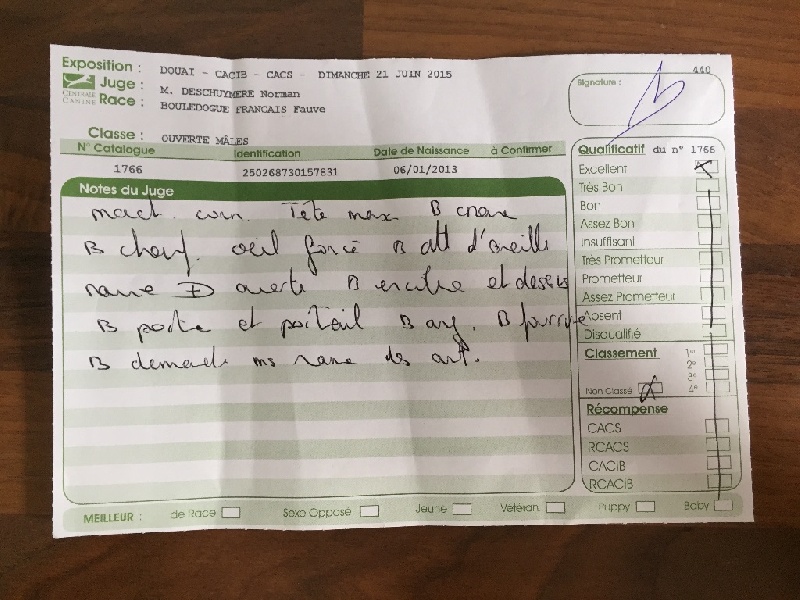 Exposition : DOUAI - CACIB - CACS - DIMANCHE 21 JUIN 2015
440
Juge : M. DESCHUYMERE Norman
CENTRALE CANINE
Race : BOULEDOGUE FRANCAIS Fauve
Signature :
Classe : OUVERTE MÂLES
N° Catalogue Identification Date de Naissance à Confirmer
1766 250268730157831 06/01/2013
Notes du Juge
Tête max B
B œil foncé B att d'oreille
D ouverte B et dessus
B porte et portail B B
B
Qualificatif du n° 1766
Excellent
Très Bon
Bon
Assez Bon
Insuffisant
Très Prometteur
Prometteur
Assez Prometteur
Absent
Disqualifié
Classement 1er
2e
3e
Non Classé 4e
Récompense
CACS
RCACS
CACIB
RCACIB
MEILLEUR : de Race Sexe Opposé Jeune Vétéran Puppy Baby